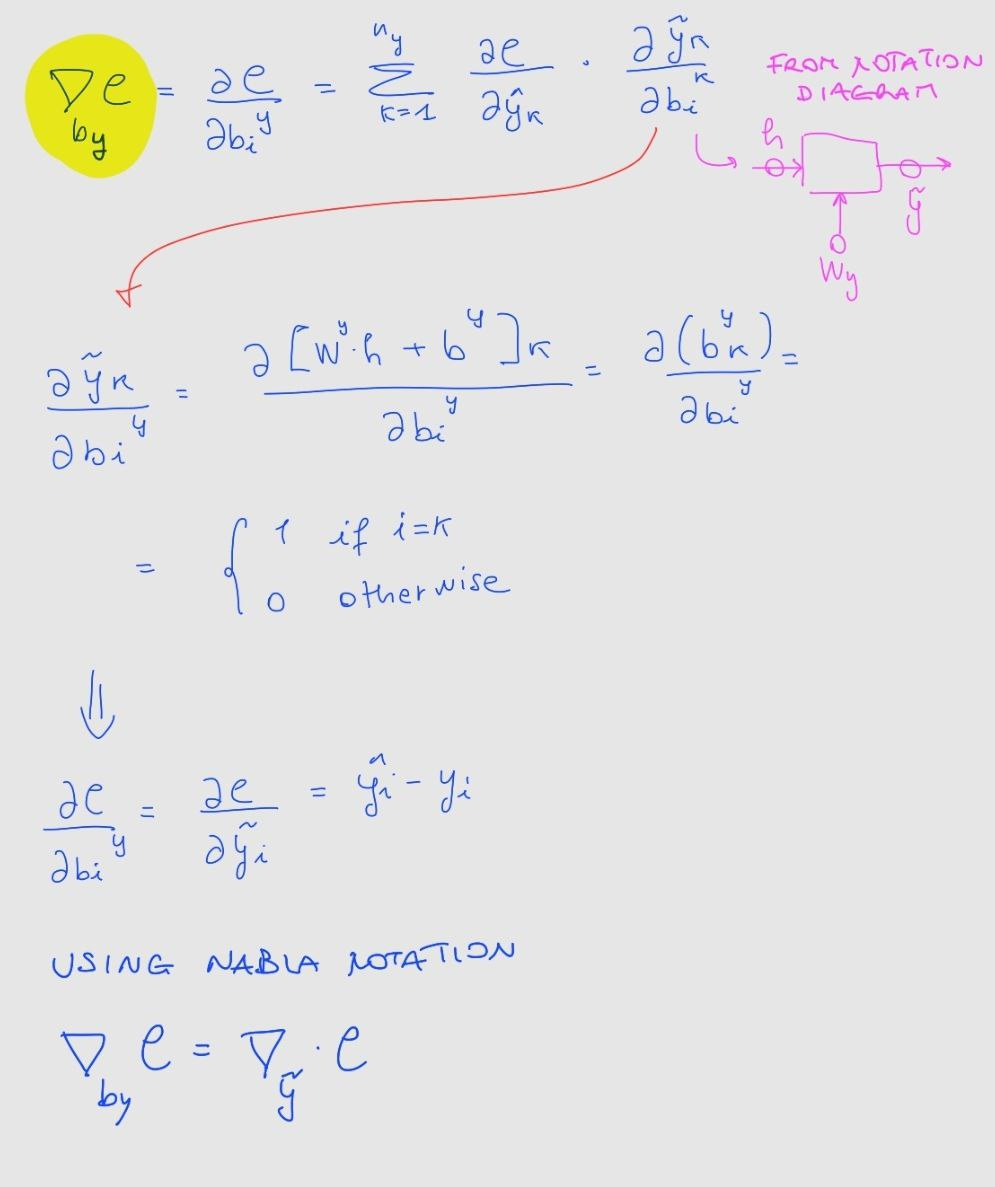 ∇_{b_y} e = ∂e/∂b_i^y = Σ_{k=1}^{n_y} ∂e/∂ŷ_k · ∂ỹ_k/∂b_i^k
FROM NOTATION
DIAGRAM
h
ỹ
W_y
∂ỹ_k/∂b_i^y = ∂[W^y·h + b^y]_k/∂b_i^y = ∂(b_k^y)/∂b_i^y =
= { 1 if i=k
0 otherwise
⇓
∂e/∂b_i^y = ∂e/∂ỹ_i = ŷ_i - y_i
USING NABLA NOTATION
∇_{b_y} e = ∇_ỹ · e